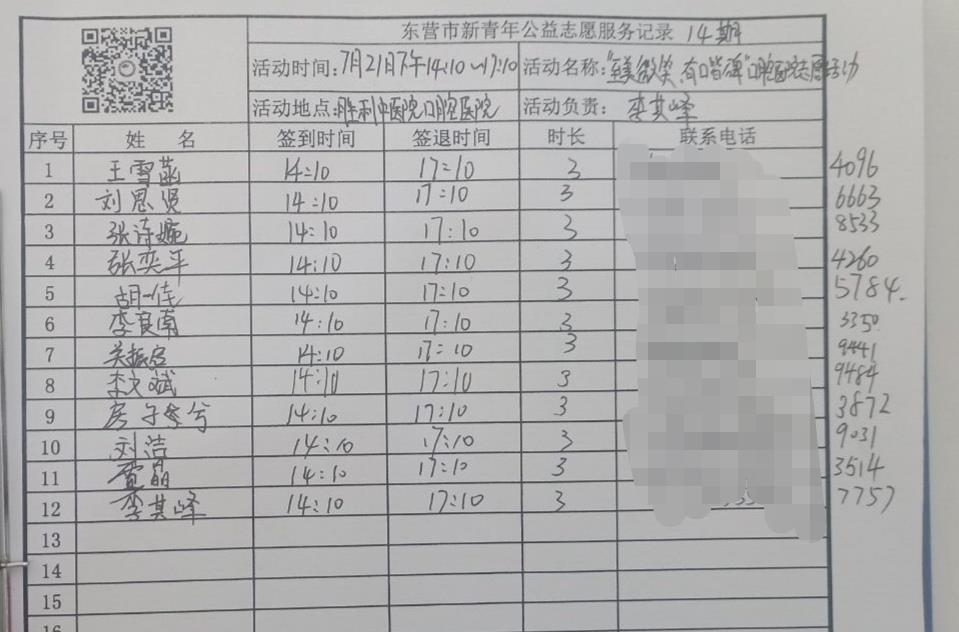 东营市新青年公益志愿服务记录 14期
活动时间:7月21日下午14:10~17:10 活动名称:"至美微笑 有口皆碑"口腔医院志愿活动
活动地点:胜利中医院口腔医院 活动负责:李其峰
序号 姓名 签到时间 签退时间 时长 联系电话
1 王雪菡 14:10 17:10 3 4096
2 刘思贤 14:10 17:10 3 6663
3 张诗婉 14:10 17:10 3 8533
4 张奕平 14:10 17:10 3 4260
5 胡一佳 14:10 17:10 3 5784.
6 李良南 14:10 17:10 3 3350
7 关振宫 14:10 17:10 3 9441
8 李文斌 14:10 17:10 3 9484
9 房子兮 14:10 17:10 3 3872
10 刘洁 14:10 17:10 3 9031
11 贾晶 14:10 17:10 3 3514
12 李其峰 14:10 17:10 3 7757
13
14
15
16